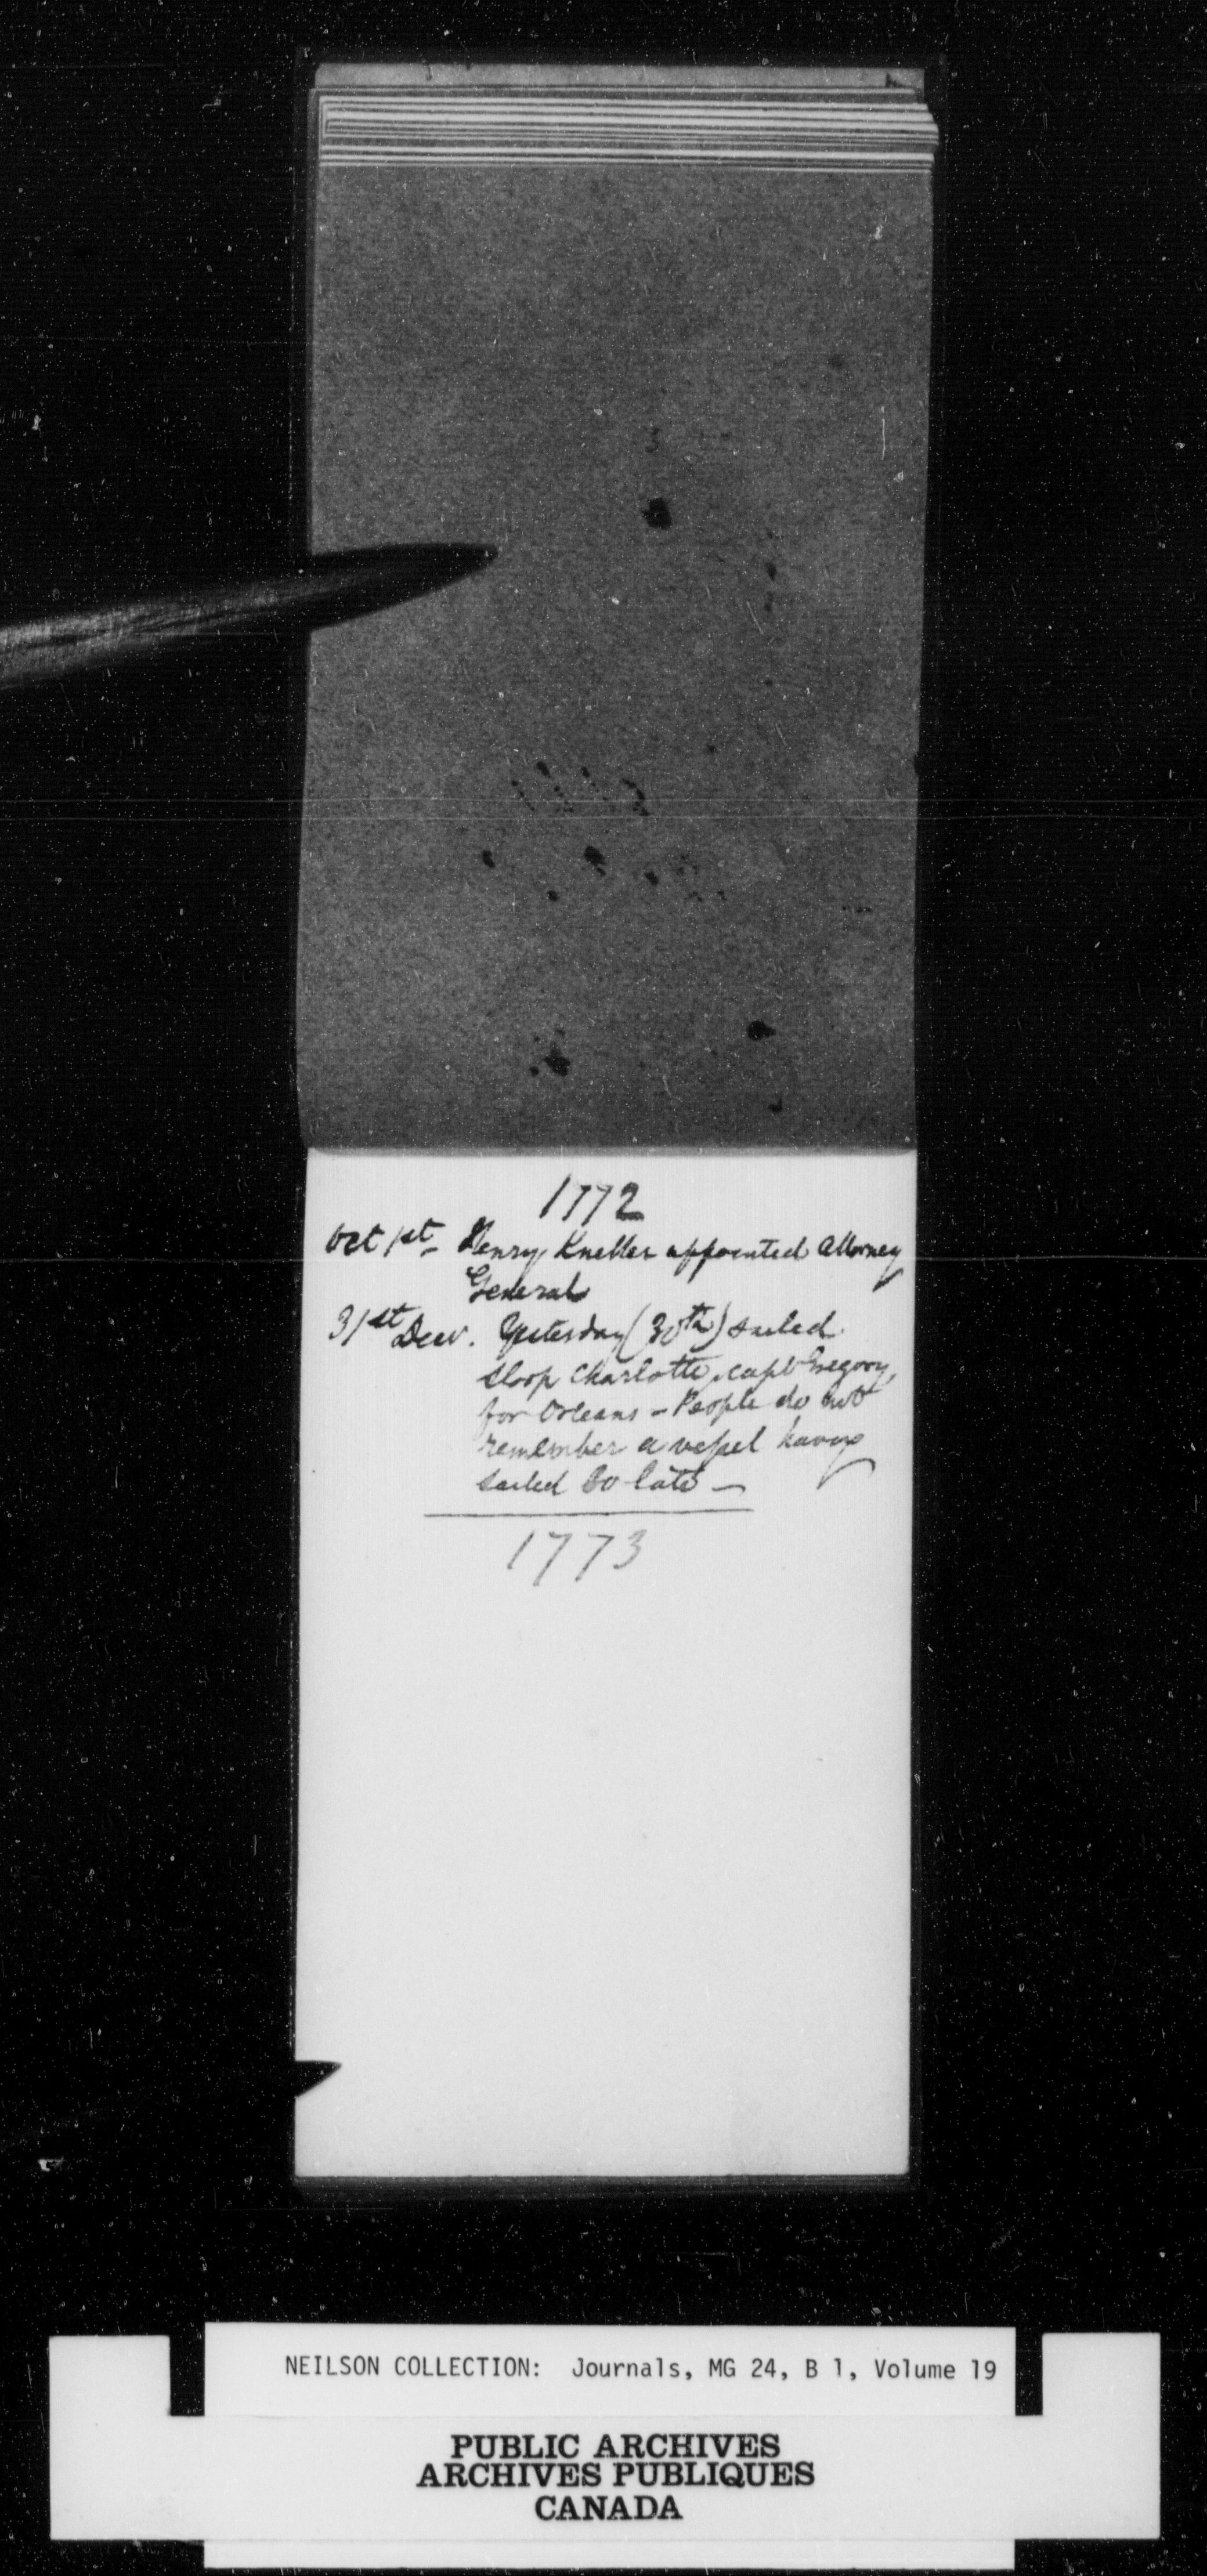 1772
Oct 1st - Henry Kneller appointed Attorney
General
31st Decr. Yesterday (30th) sailed
Sloop Charlotte, Capt Gregory,
for Orleans - People do not
remember a vessel having
sailed so late -
1773
NEILSON COLLECTION: Journals, MG 24, B 1, Volume 19
PUBLIC ARCHIVES
ARCHIVES PUBLIQUES
CANADA